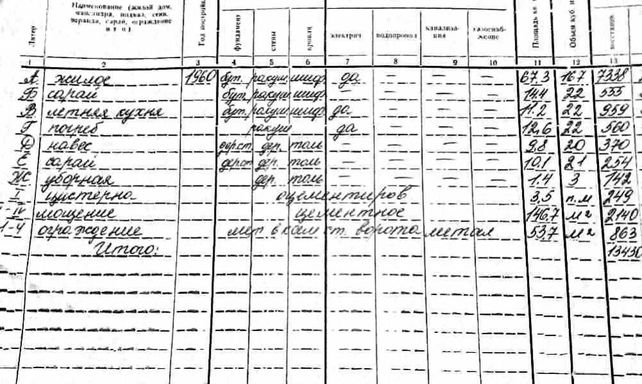 Литер
Наименование (жилой дом,
Год постройки
фундамент
стены
кровля
электрич.
водопровод
канализа-
ция
газоснаб-
жение
Площадь кв
Объем куб
1 2 3 4 5 6 7 8 9 10 11 12 13
А жилое 1960 бут. ракуш шиф. да — — — 67,3 167 7338
Б сарай бут. ракуш шиф. — — — — 14,4 22 555
В летняя кухня бут. ракуш шиф. да — — — 11,2 22 959
Г погреб ракуш да — — — 12,6 22 560
Д навес дерст. дер. толь — — — — 9,8 20 370
Е сарай дерст. дер. толь — — — — 10,1 21 254
Ж уборная дер. толь — — — — 1,4 3 142
I цистерна оцементиров 3,5 п.м 249
IV мощение цементное 146,7 м2 2140
1-4 ограждение мет. ворота метал 53,7 м2 863
Итого: 13430